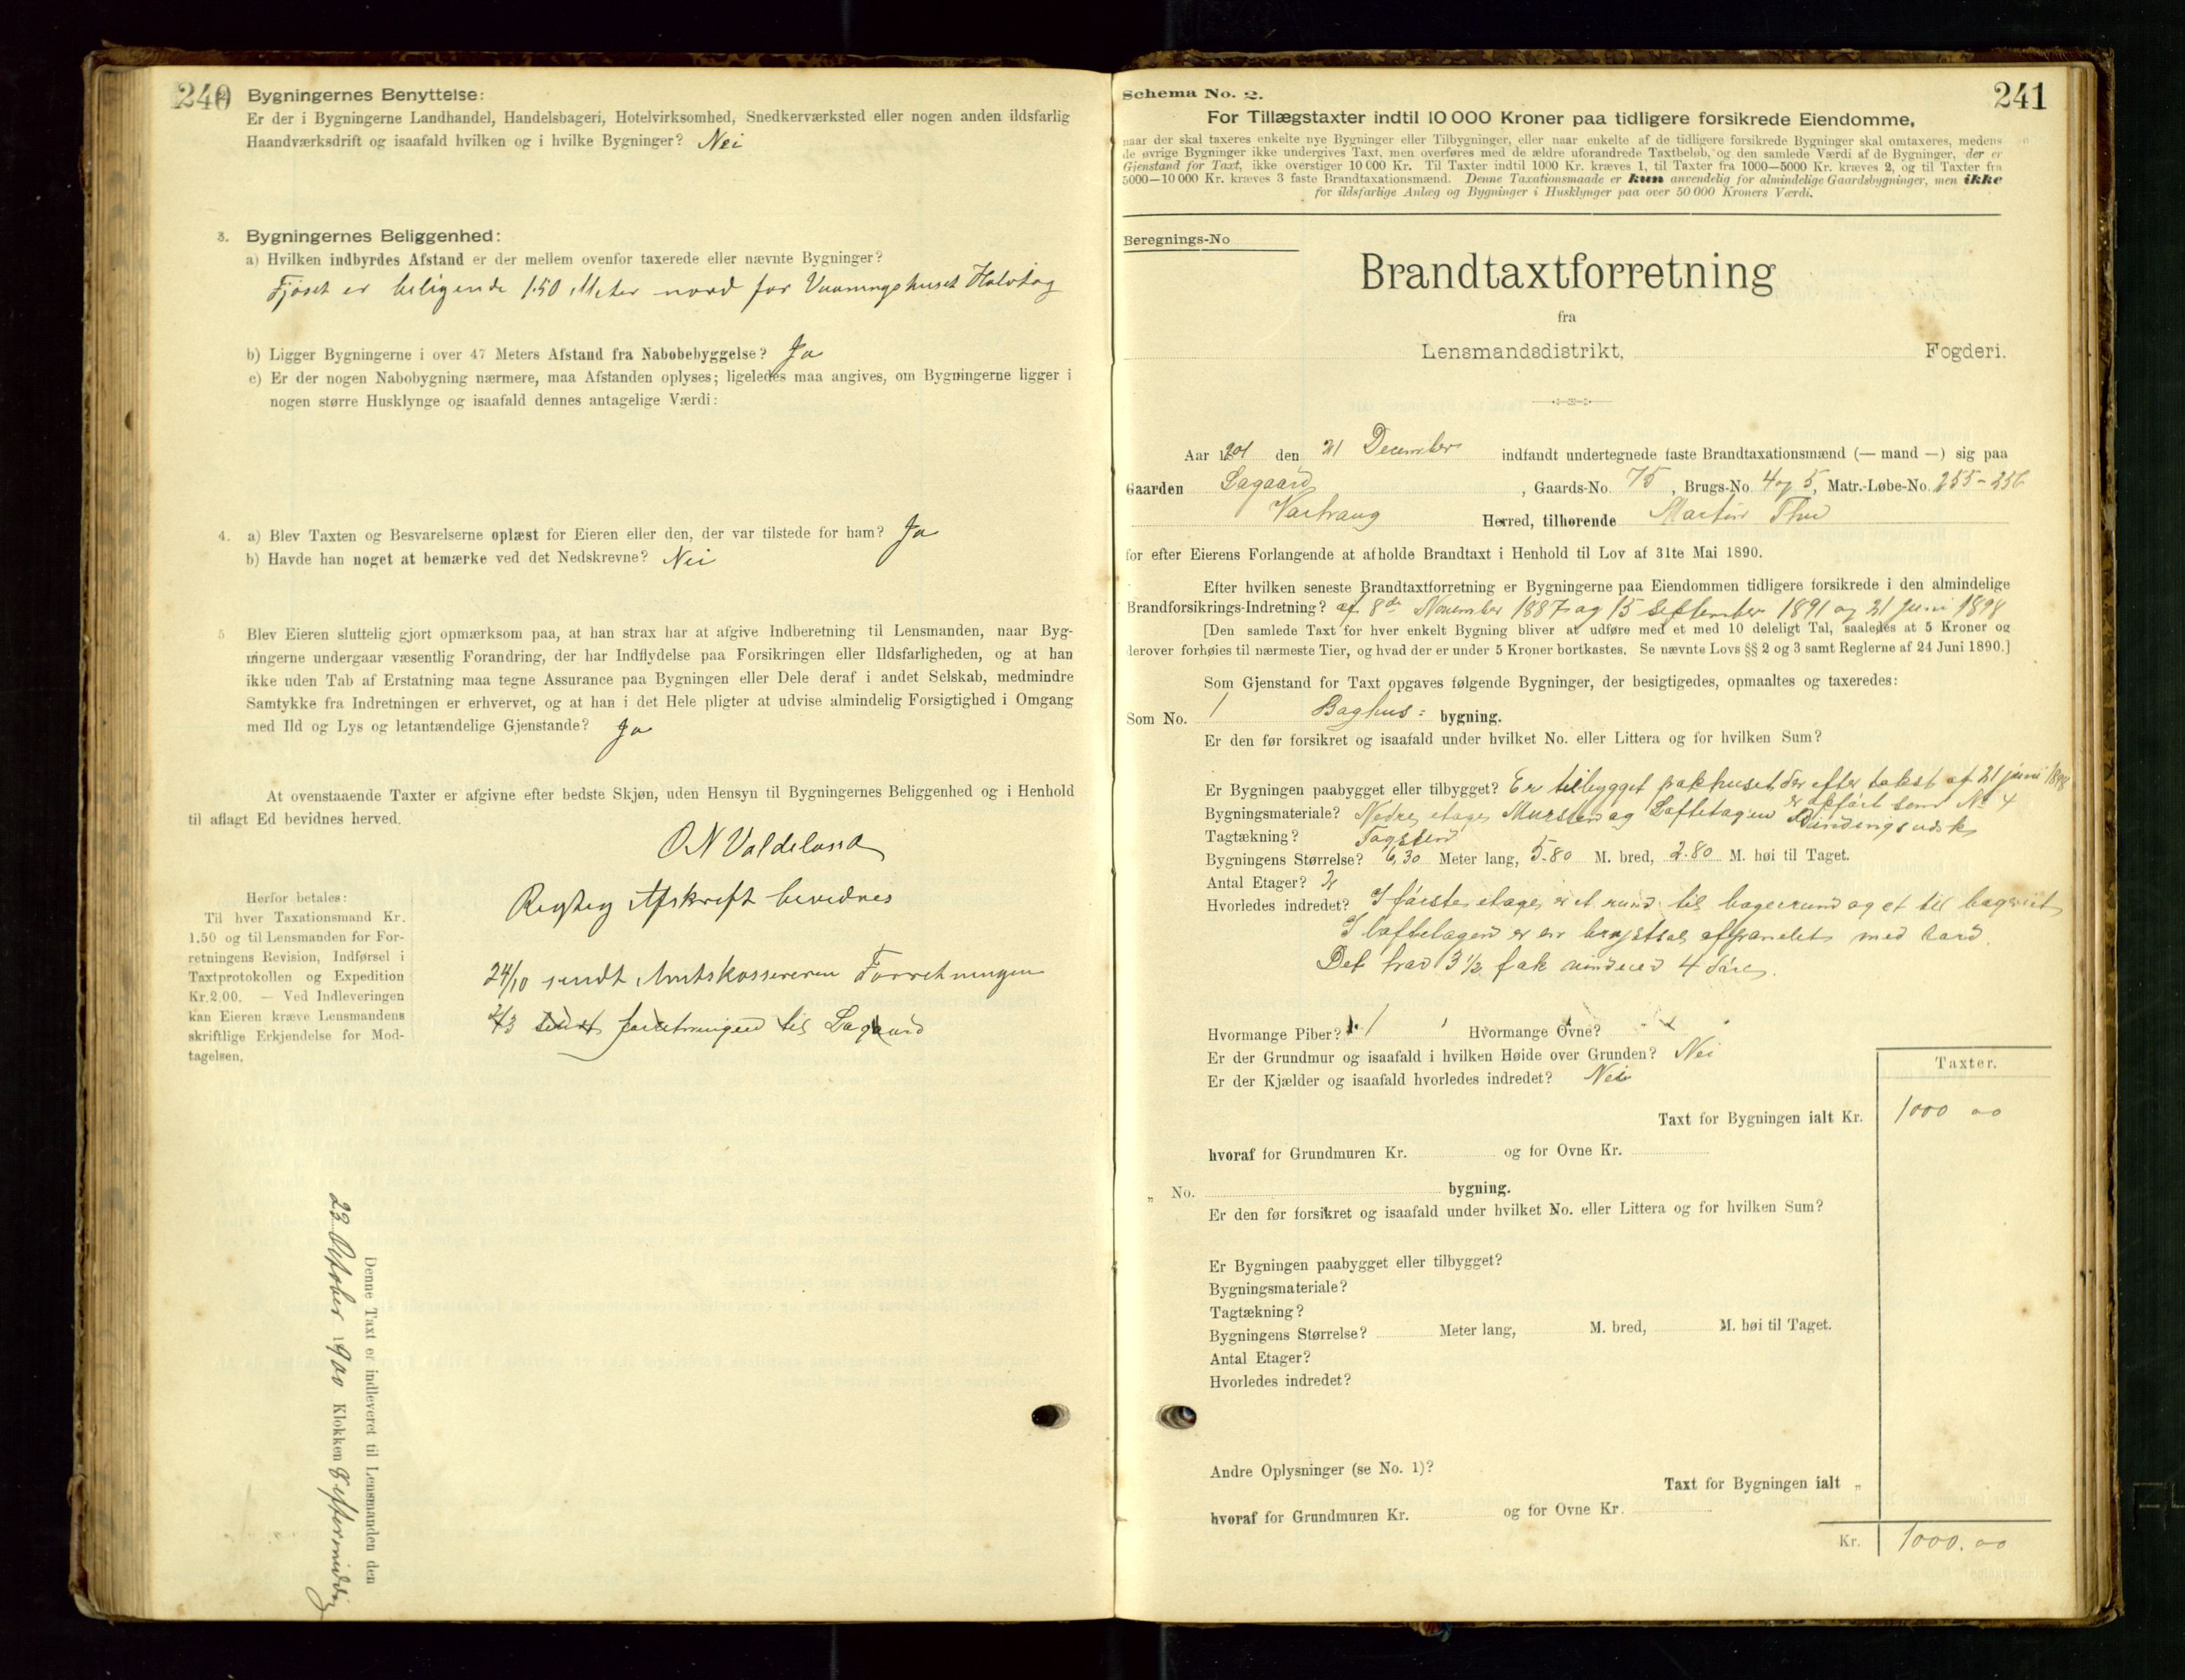 240
2. Bygningernes Benyttelse:
Er der i Bygningerne Landhandel, Handelsbageri, Hotelvirksomhed, Snedkerværksted eller nogen anden ildsfarlig
Haandværksdrift og isaafald hvilken og i hvilke Bygninger? Nei
3. Bygningernes Beliggenhed:
a) Hvilken indbyrdes Afstand er der mellem ovenfor taxerede eller nævnte Bygninger?
Fjøset er beligende 150 Meter nord for Vaaningshuset
b) Ligger Bygningerne i over 47 Meters Afstand fra Nabobebyggelse? Ja
c) Er der nogen Nabobygning nærmere, maa Afstanden oplyses; ligeledes maa angives, om Bygningerne ligger i
nogen større Husklynge og isaafald dennes antagelige Værdi:
4. a) Blev Taxten og Besvarelserne oplæst for Eieren eller den, der var tilstede for ham? Ja
b) Havde han noget at bemærke ved det Nedskrevne? Nei
5 Blev Eieren sluttelig gjort opmærksom paa, at han strax har at afgive Indberetning til Lensmanden, naar Byg-
ningerne undergaar væsentlig Forandring, der har Indflydelse paa Forsikringen eller Ildsfarligheden, og at han
ikke uden Tab af Erstatning maa tegne Assurance paa Bygningen eller Dele deraf i andet Selskab, medmindre
Samtykke fra Indretningen er erhvervet, og at han i det Hele pligter at udvise almindelig Forsigtighed i Omgang
med Ild og Lys og letantændelige Gjenstande? Ja
At ovenstaaende Taxter er afgivne efter bedste Skjøn, uden Hensyn til Bygningernes Beliggenhed og i Henhold
til aflagt Ed bevidnes herved.
O N Valdeland
Rigtig Afskrift bevidnes
24/10 sendt Amtskassereren Forretningen
2/3 sendt forretningen til Lagaard
Herfor betales:
Til hver Taxationsmand Kr.
1.50 og til Lensmanden for For-
retningens Revision, Indførsel i
Taxtprotokollen og Expedition
Kr. 2.00. — Ved Indleveringen
kan Eieren kræve Lensmandens
skriftlige Erkjendelse for Mod-
tagelsen.
Denne Taxt er indleveret til Lensmanden den
23 October 1900 Klokken 8 eftermiddag
241
Schema No. 2.
For Tillægstaxter indtil 10 000 Kroner paa tidligere forsikrede Eiendomme,
naar der skal taxeres enkelte nye Bygninger eller Tilbygninger, eller naar enkelte af de tidligere forsikrede Bygninger skal omtaxeres, medens
de øvrige Bygninger ikke undergives Taxt, men overføres med de ældre uforandrede Taxtbeløb, og den samlede Værdi af de Bygninger, der er
Gjenstand for Taxt, ikke overstiger 10 000 Kr. Til Taxter indtil 1000 Kr. kræves 1, til Taxter fra 1000—5000 Kr. kræves 2, og til Taxter fra
5000—10 000 Kr. kræves 3 faste Brandtaxationsmænd. Denne Taxationsmaade er kun anvendelig for almindelige Gaardsbygninger, men ikke
for ildsfarlige Anlæg og Bygninger i Husklynger paa over 50 000 Kroners Værdi.
Beregnings-No
Brandtaxtforretning
fra
Lensmandsdistrikt, Fogderi.
Aar 1901 den 21 December indfandt undertegnede faste Brandtaxationsmænd (— mand —) sig paa
Gaarden Lagaard, Gaards-No. 75, Brugs-No. 4 og 5, Matr.-Løbe-No. 255-256
Herred, tilhørende Martin
for efter Eierens Forlangende at afholde Brandtaxt i Henhold til Lov af 31te Mai 1890.
Efter hvilken seneste Brandtaxtforretning er Bygningerne paa Eiendommen tidligere forsikrede i den almindelige
Brandforsikrings-Indretning? af 8de November 1887 og 15 September 1891 og 21 Juni 1898
[Den samlede Taxt for hver enkelt Bygning bliver at udføre med et med 10 deleligt Tal, saaledes at 5 Kroner og
derover forhøies til nærmeste Tier, og hvad der er under 5 Kroner bortkastes. Se nævnte Lovs §§ 2 og 3 samt Reglerne af 24 Juni 1890.]
Som Gjenstand for Taxt opgaves følgende Bygninger, der besigtigedes, opmaaltes og taxeredes:
Som No. 1 Baghus: bygning.
Er den før forsikret og isaafald under hvilket No. eller Littera og for hvilken Sum?
Er Bygningen paabygget eller tilbygget? Er tilbygget pakhuset der efter takst af 21 juni 1898
er opført som No 4
Bygningsmateriale? Nedre etage Mursten og Loftetagen Bindingsværk
Tagtækning? Tagsten
Bygningens Størrelse? 6,30 Meter lang, 5.80 M. bred, 2.80 M. høi til Taget.
Antal Etager? 2
Hvorledes indredet? I første etage er et rum til bagerrum og et til bageriet
I loftetagen er en afpanelet med bord.
Det har 3 1/2 fak vinduer 4 døre.
Hvormange Piber? 1 Hvormange Ovne?
Er der Grundmur og isaafald i hvilken Høide over Grunden? Nei
Er der Kjælder og isaafald hvorledes indredet? Nei
Taxter.
Taxt for Bygningen ialt Kr. 1000 00
hvoraf for Grundmuren Kr. og for Ovne Kr.
„ No. bygning.
Er den før forsikret og isaafald under hvilket No. eller Littera og for hvilken Sum?
Er Bygningen paabygget eller tilbygget?
Bygningsmateriale?
Tagtækning?
Bygningens Størrelse? Meter lang, M. bred, M. høi til Taget.
Antal Etager?
Hvorledes indredet?
Andre Oplysninger (se No. 1)?
Taxt for Bygningen ialt „
hvoraf for Grundmuren Kr. og for Ovne Kr.
Kr. 1000.00